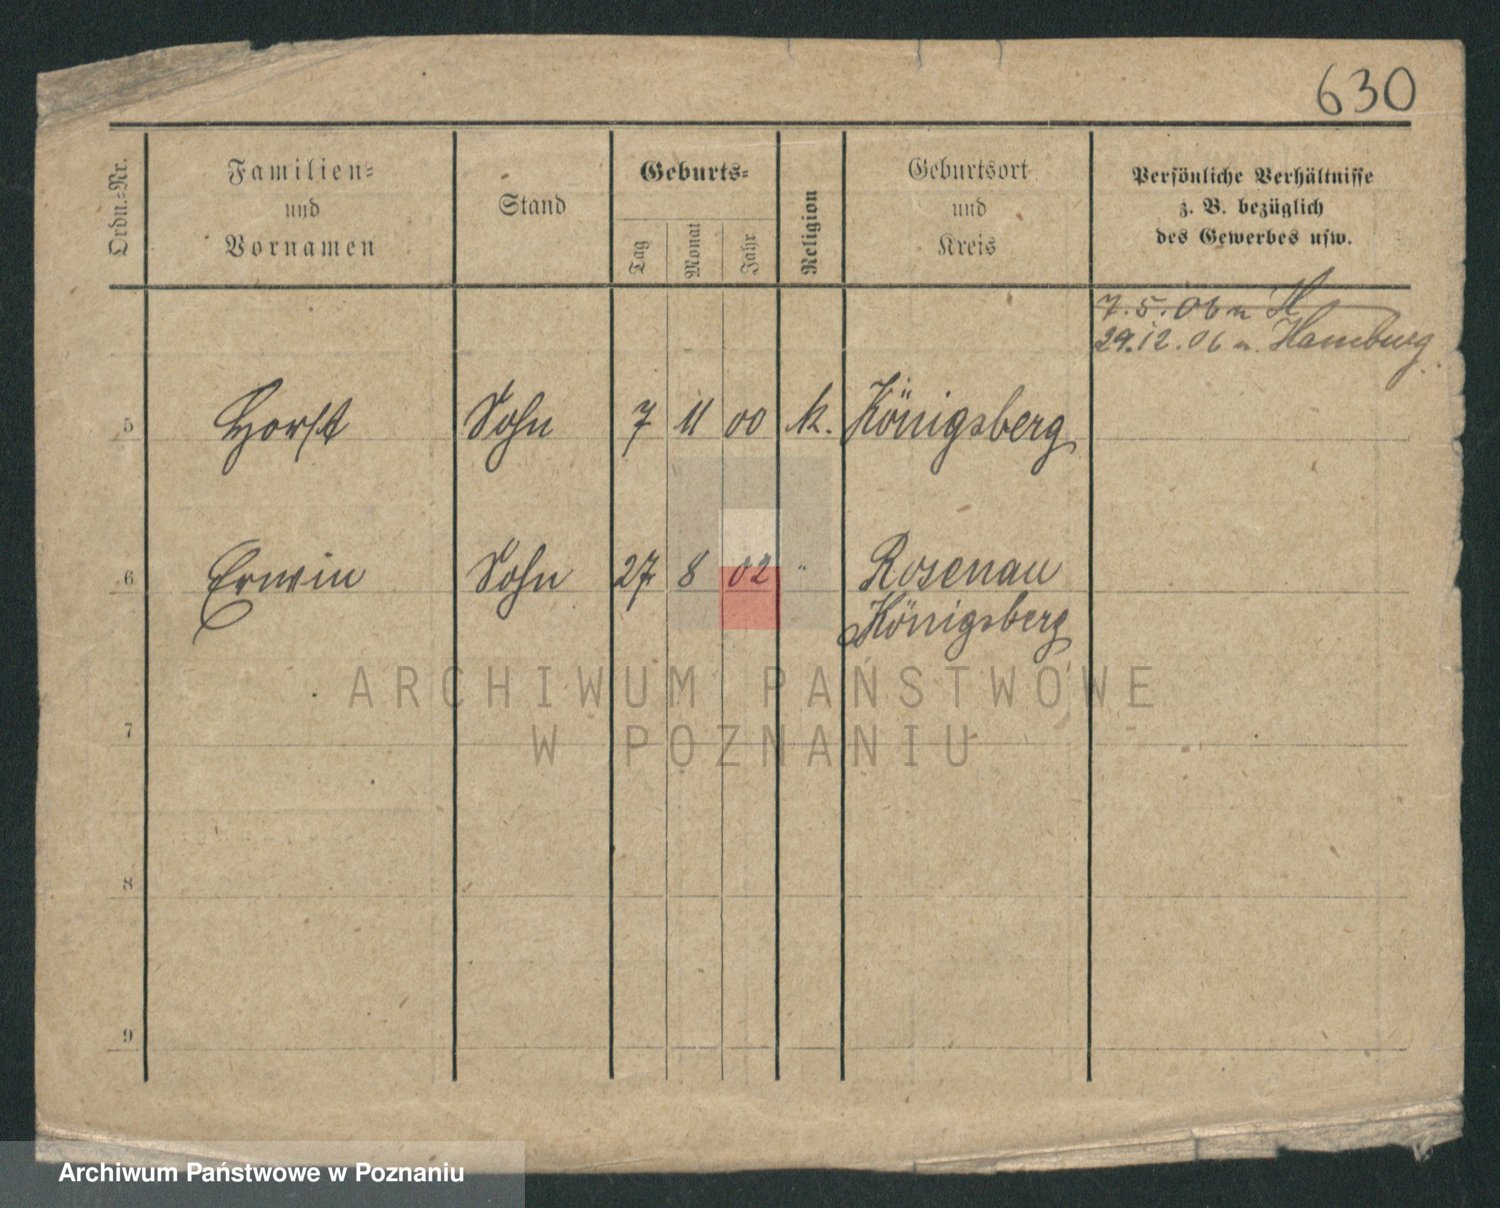 630
Ordn.-Nr.
Familien-
und
Vornamen
Stand
Geburts-
Tag
Monat
Jahr
Religion
Geburtsort
und
Kreis
Persönliche Verhältnisse
z. B. bezüglich
des Gewerbes usw.
7.5.06 n H
29.12.06 n. Hamburg.
5 Horst Sohn 7 11 00 k. Königsberg
6 Erwin Sohn 27 8 02 " Rosenau
Königsberg
ARCHIWUM PAŃSTWOWE
W POZNANIU
7
8
9
Archiwum Państwowe w Poznaniu